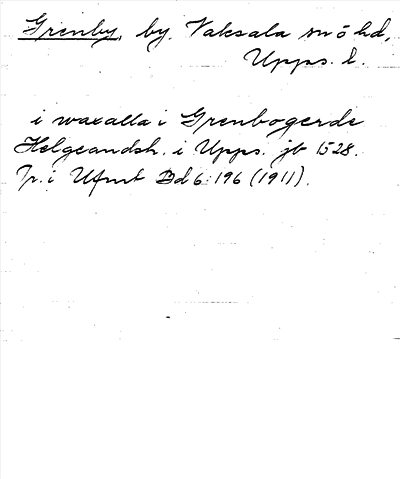 Grenby, by. Vaksala sn ö hd,
Upps. l.
i waxalla i Grenbogerde
Helgeandsh. i Upps. jb 1528.
Tr. i Ufmt Bd 6: 196 (1911).